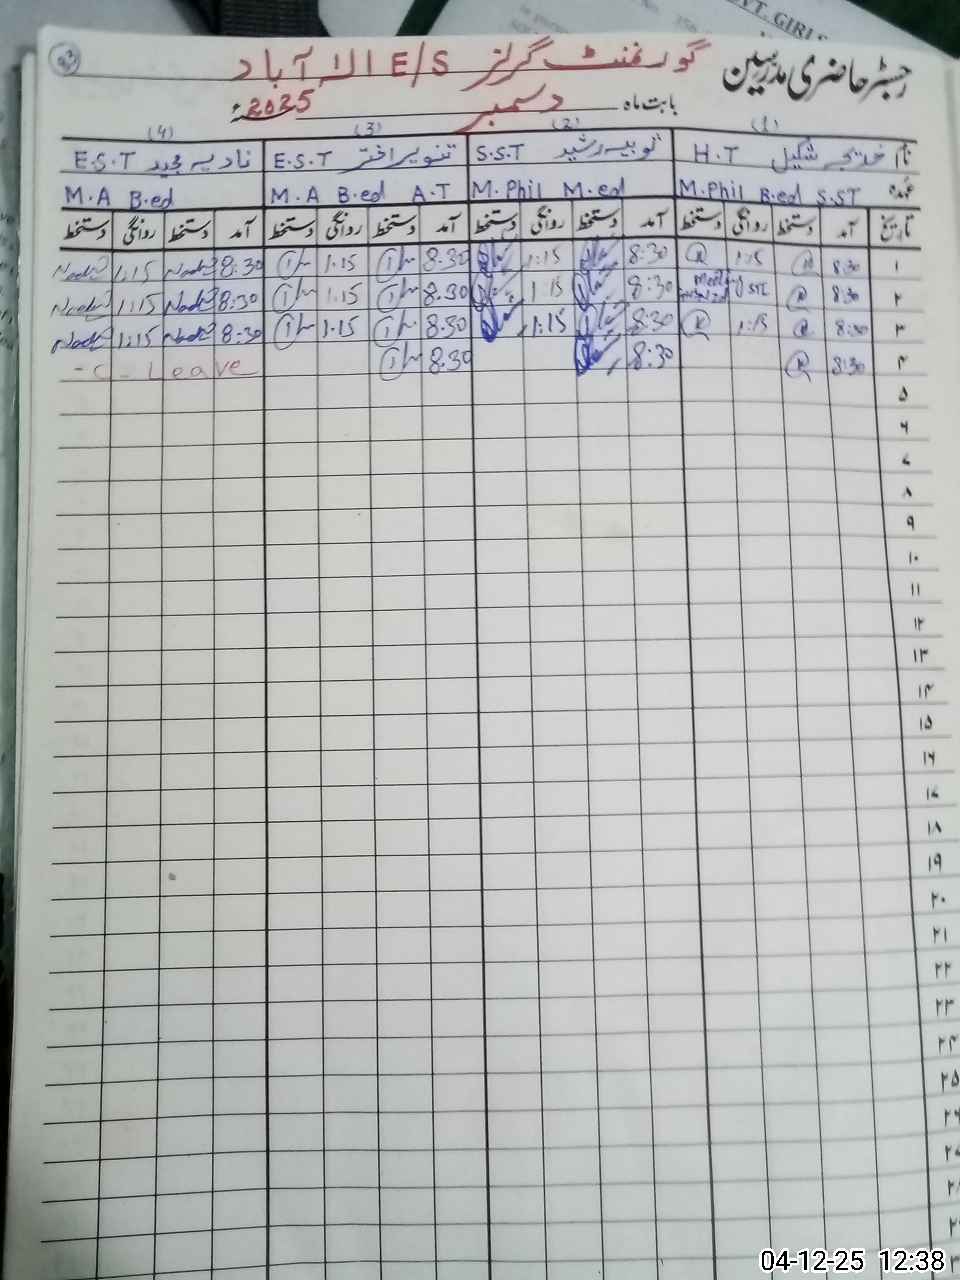 VT. GIRLS
رجسٹر حاضری مدرسین گورنمنٹ گرلز E/S الہ آباد
بابت ماہ دسمبر 2025ء
(1) (2) (3) (4)
نام خدیجہ شکیل H.T ثوبیہ رشید S.S.T تنویر اختر E.S.T نادیہ مجید E.S.T
عہدہ M.Phil B.ed S.ST M.Phil M.ed M.A B.ed A.T M.A B.ed
تاریخ آمد دستخط روانگی دستخط آمد دستخط روانگی دستخط آمد دستخط روانگی دستخط آمد دستخط روانگی دستخط
۱ 8:30 1:15 8:30 1:15 8:30 1:15 8:30 1:15
۲ 8:30 Meeting 8:30 1:15 8:30 1:15 8:30 1:15
۳ 8:30 1:15 8:30 1:15 8:30 1:15 8:30 1:15
۴ 8:30 8:30 8:30 - C - Leave
۵
۶
۷
۸
۹
۱۰
۱۱
۱۲
۱۳
۱۴
۱۵
۱۶
۱۷
۱۸
۱۹
۲۰
۲۱
۲۲
۲۳
۲۴
۲۵
۲۶
۲۷
۲۸
04-12-25 12:38